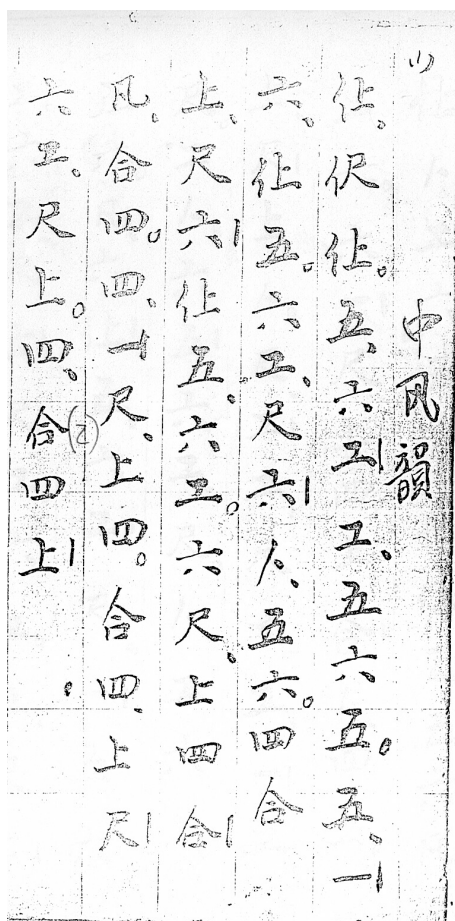 (1) 中风韻
仩、伬仩。五、六工| 工、五六五。五、一|
六。仩五。六工、尺六| 亻、五六。四合
上、尺六| 仩五、六工。六尺、上四合|
凡、合四。四、一尺、上四。合四、上尺|
六工、尺上。四、合(工)四上|。